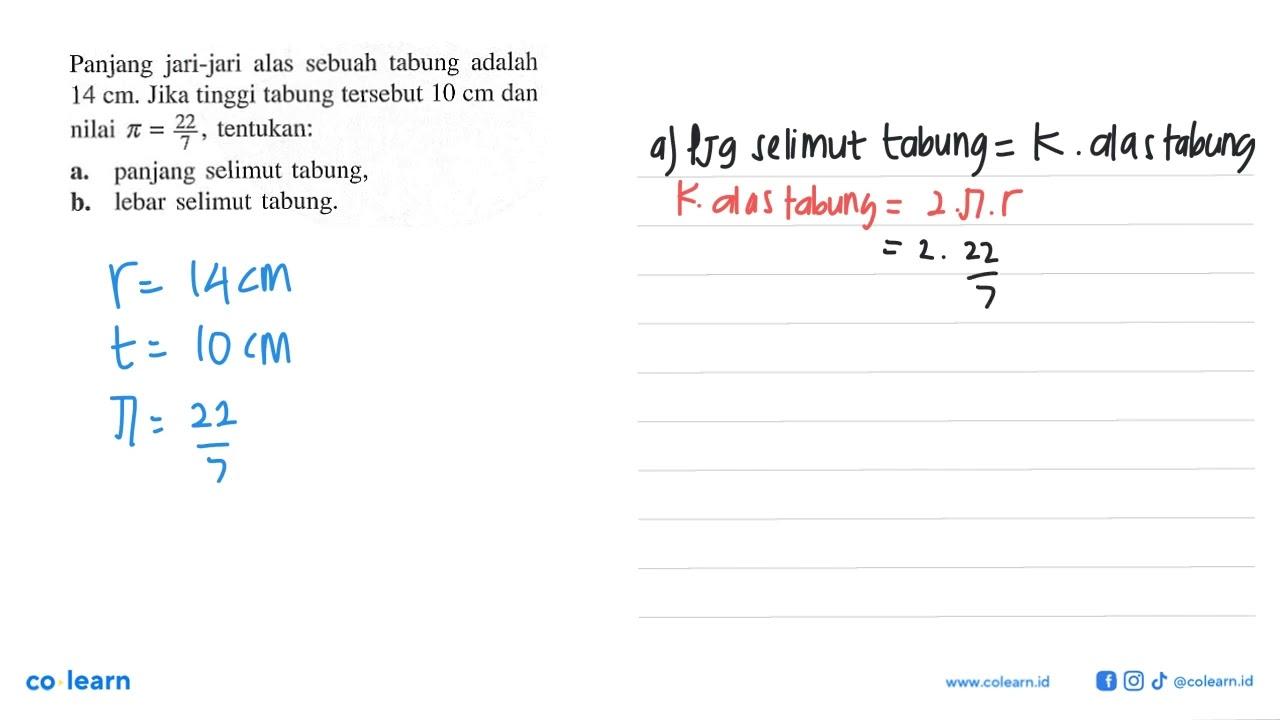 Panjang jari-jari alas sebuah tabung adalah
14 cm. Jika tinggi tabung tersebut 10 cm dan
nilai π = 22/7, tentukan:
a. panjang selimut tabung,
b. lebar selimut tabung.
r = 14 cm
t = 10 cm
π = 22/7
a) pjg selimut tabung = K. alas tabung
K. alas tabung = 2.π.r
= 2. 22/7
co learn
www.colearn.id
@colearn.id